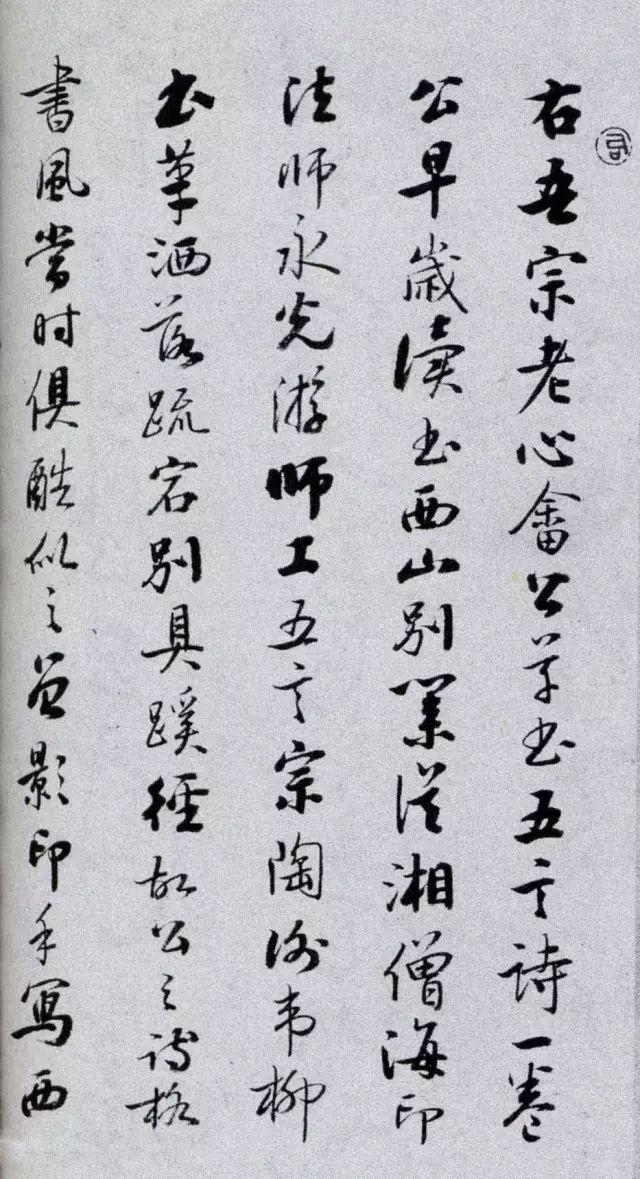 右吾宗老心畬公草书五言诗一卷
公早歲读书西山别業從湘僧海印
法师永光游师工五言宗陶谢韦柳
书笔洒落疏宕别具蹊径故公之诗格
書風當时俱酷似之曾影印手寫西